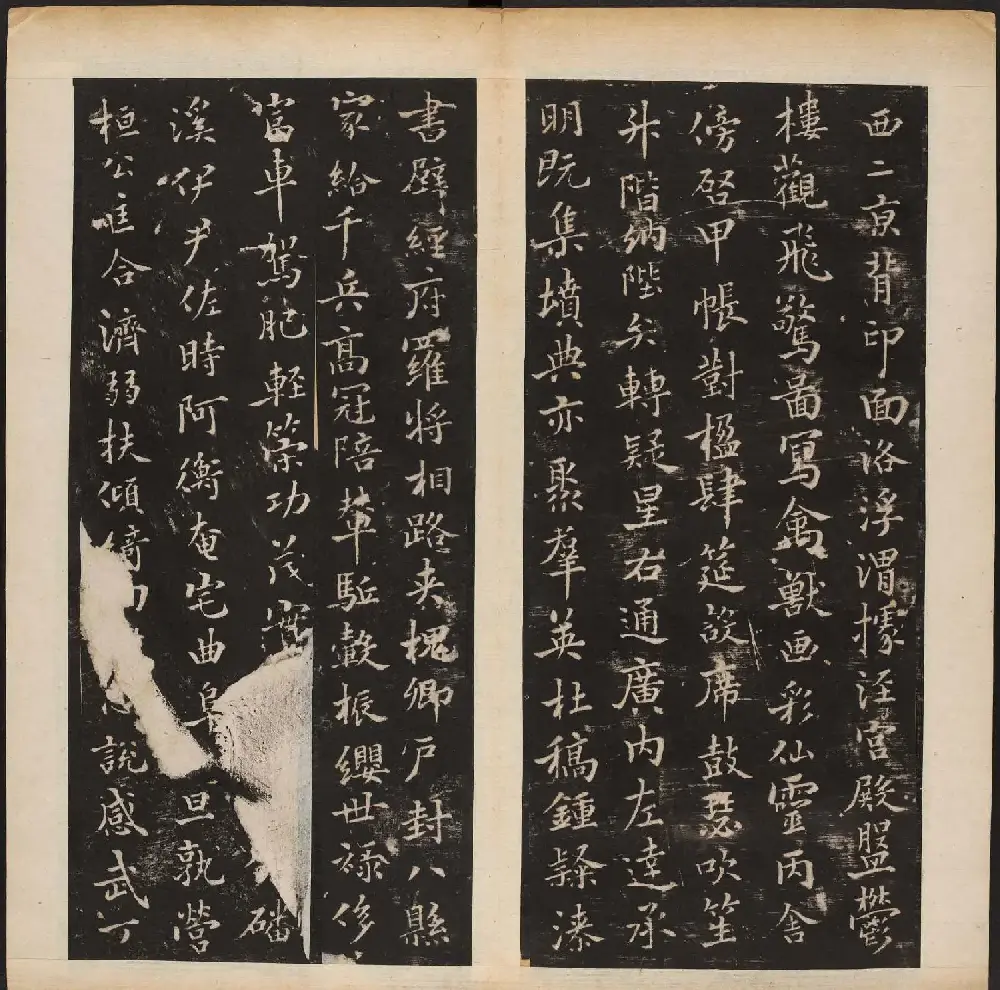 西二京背印面洛浮渭據涇宮殿盤欝
樓觀飛驚畵寫禽獸画彩仙靈丙舍
傍啓甲帳對楹肆筵設席鼓瑟吹笙
升階納陛弁轉疑星右通廣內左達承
明既集墳典亦聚羣英杜稿鍾隸漆
書壁經府羅將相路夹槐卿戶封八縣
家給千兵高冠陪輦駈轂振纓世祿侈
富車駕肥軽策功茂實磻
溪伊尹佐時阿衡奄宅曲阜旦孰營
桓公匡合濟弱扶傾綺說感武丁